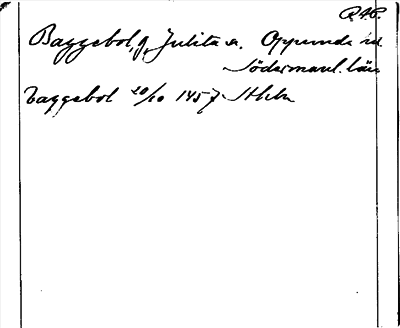 RAP.
Baggebol, g, Julita sn. Oppunda hd.
Södermanl. län
Baggebol 20/10 1457 Sthlm